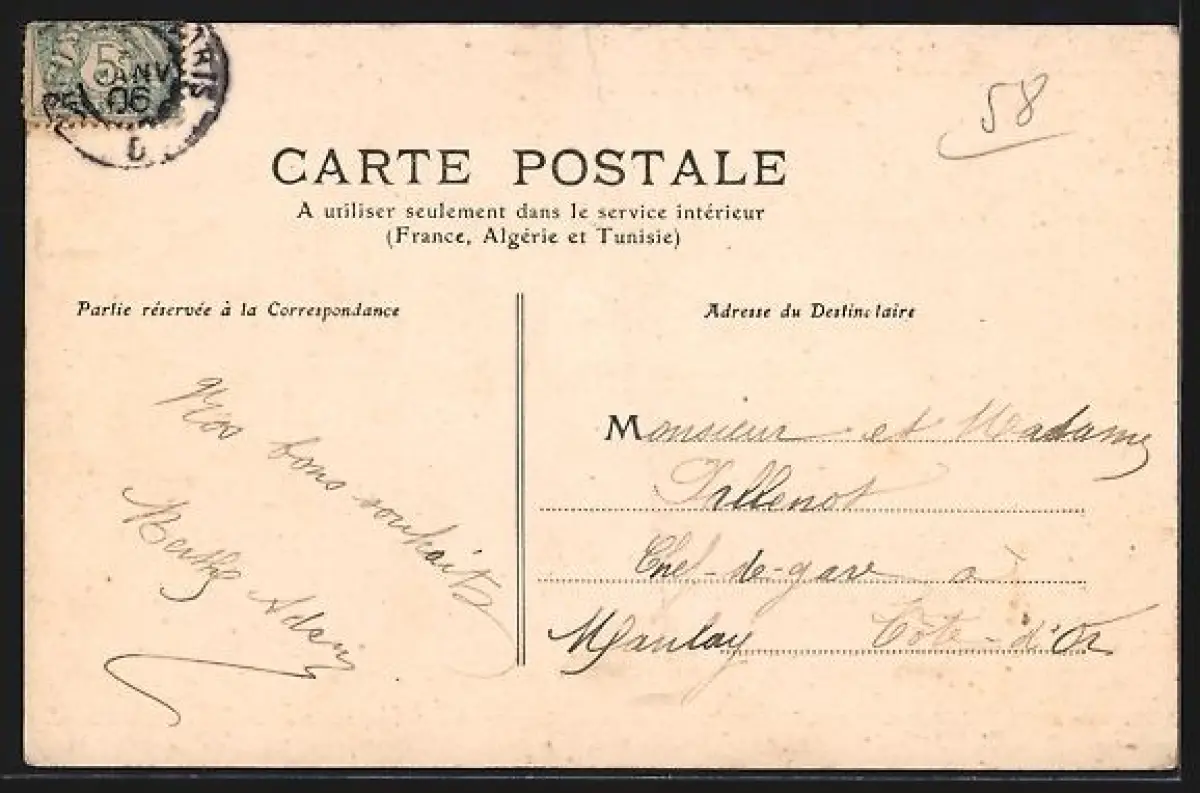 PARIS
5
JANV
06
58
CARTE POSTALE
A utiliser seulement dans le service intérieur
(France, Algérie et Tunisie)
Partie réservée à la Correspondance
Nos bons souhaits
Berthe
Adresse du Destinataire
Monsieur et Madame
Chef-de-gare à
Côte-d'Or